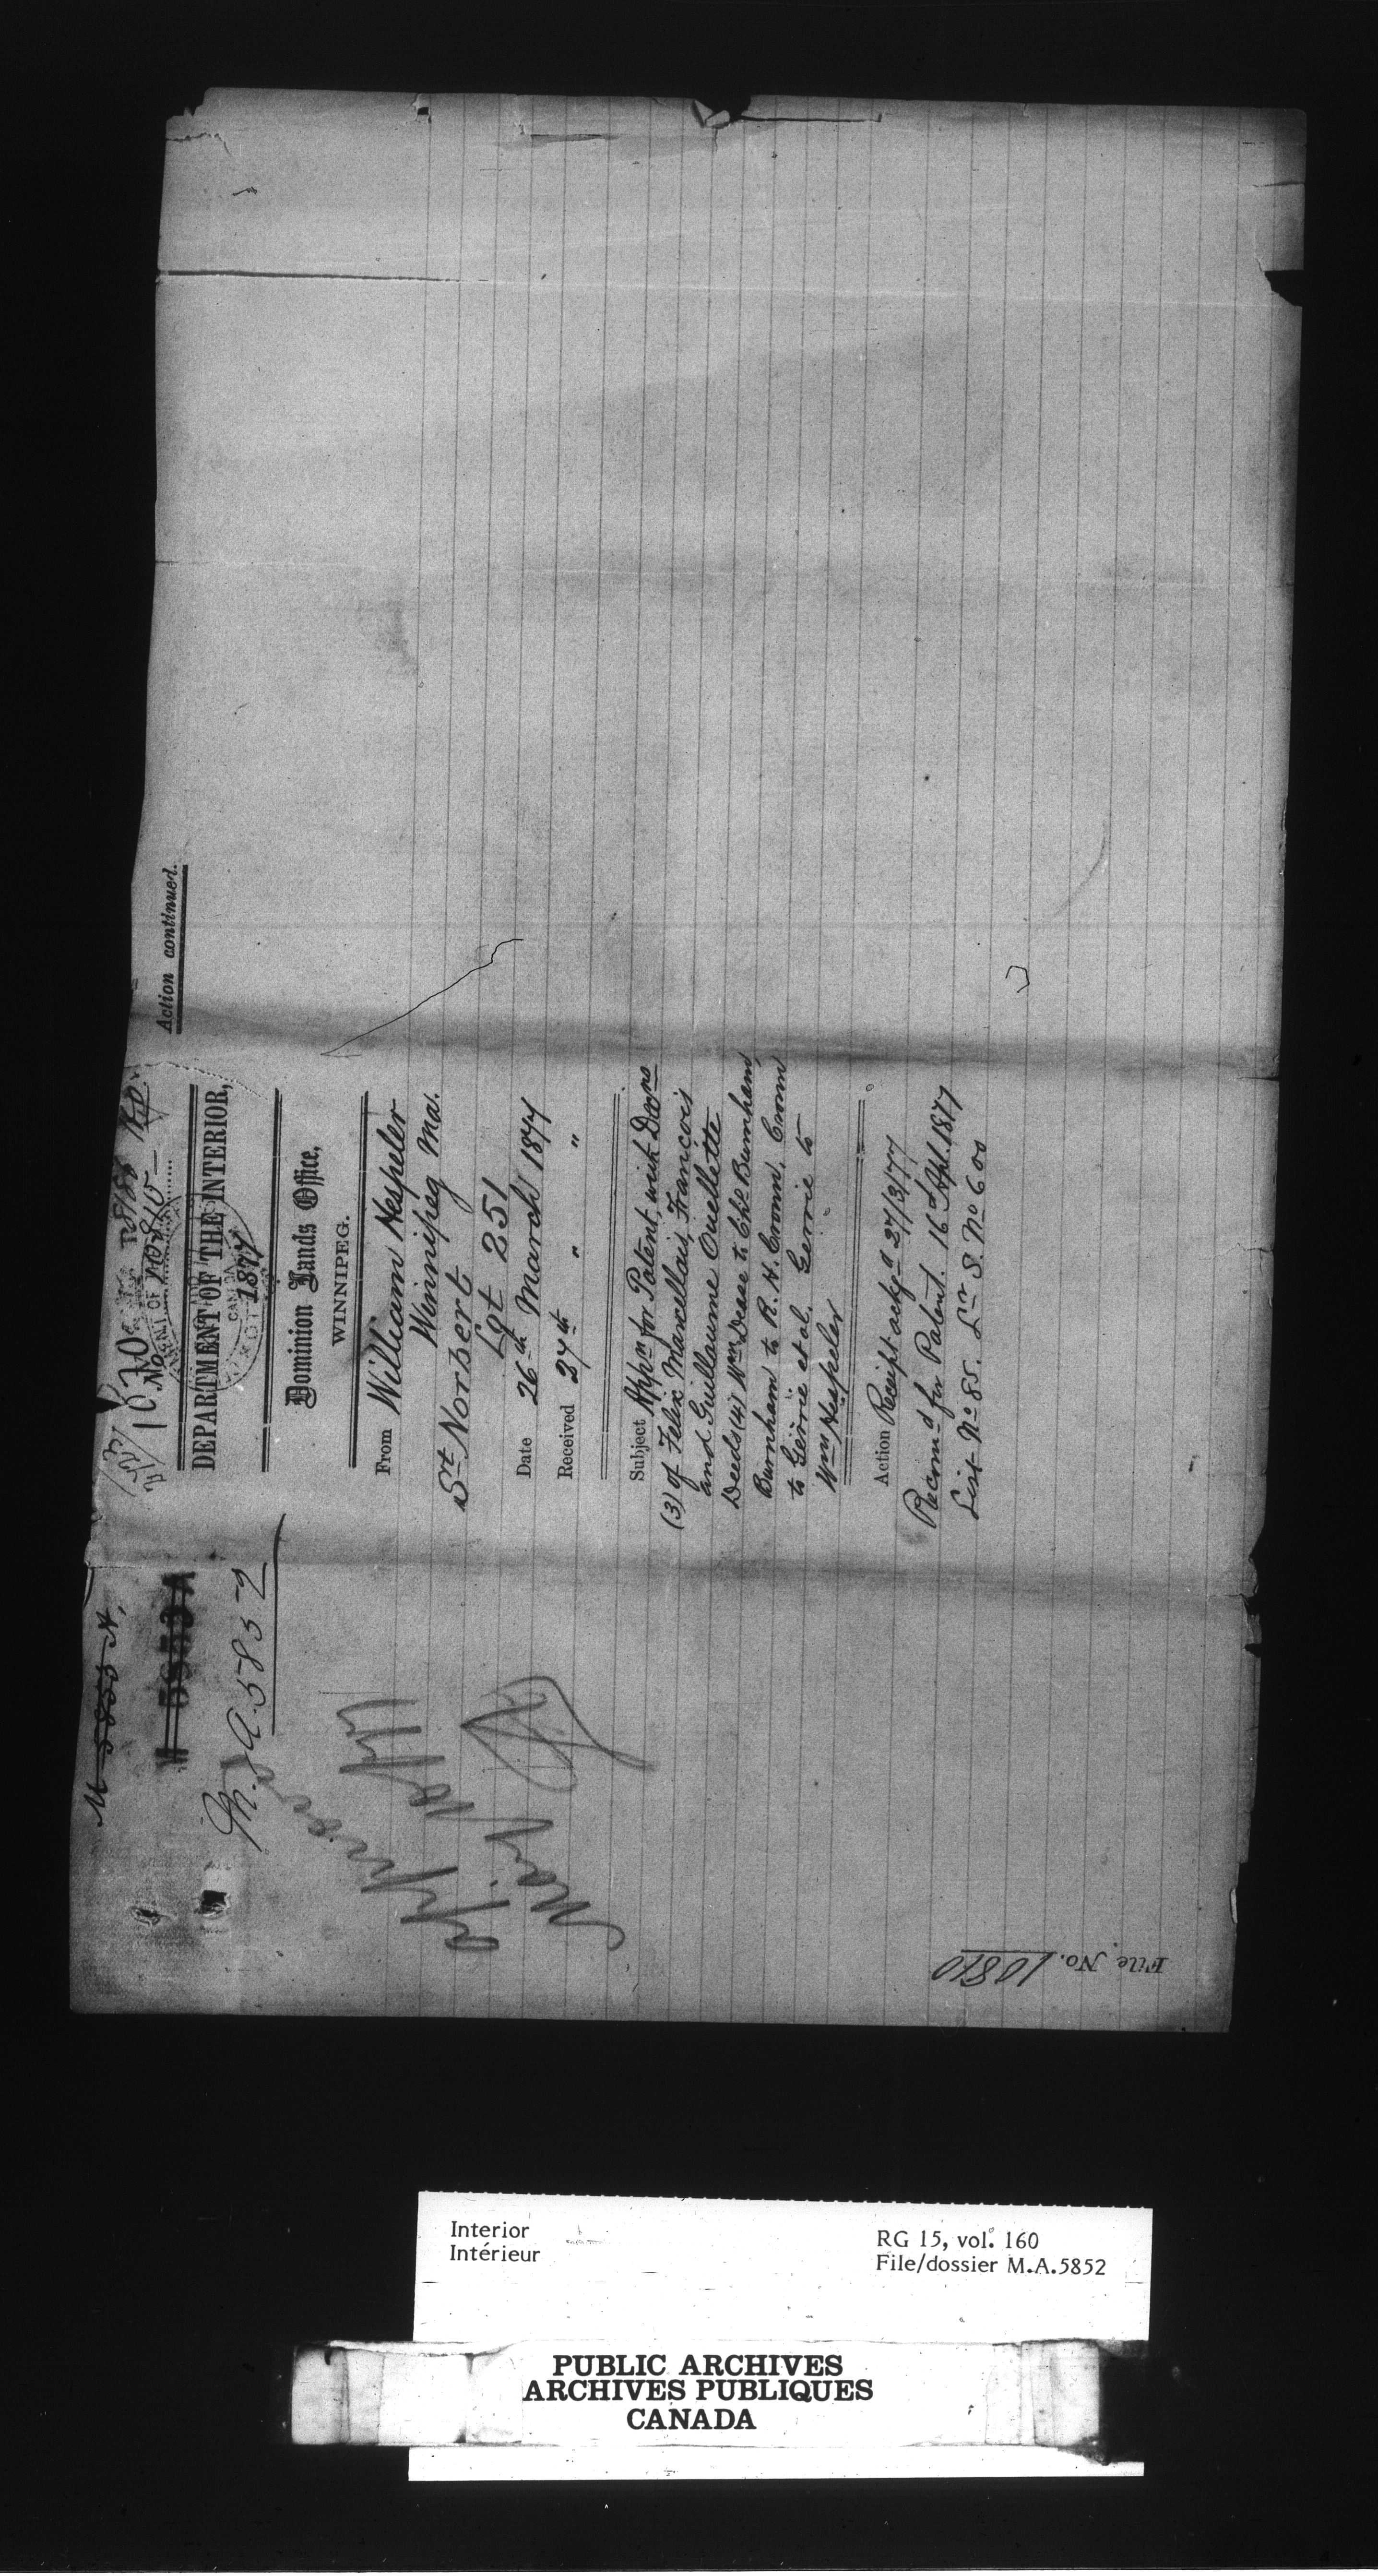 M 5853 A.
5853 A
M. A. 5852
Approved
Mar 18/77
1070
No. 10810
DEPARTMENT OF THE INTERIOR,
1877
Dominion Lands Office,
WINNIPEG.
From William Hespeler
Winnipeg Ma.
St. Norbert
Lot 251
Date 26th March 1877
Received 27th " "
Subject Appn for Patent, with Decns
(3) of Felix Marcellais, Francois
and Guillaume Ouellette
Deeds (4) Wm Dease to Chs Burnham,
Burnham to R. H. Cronn, Cronn
to Gerrie et al, Gerrie to
Wm Hespeler
Action Receipt ackgd 27/3/77
Recomd for Patent. 16th Apl. 1877
List No 85. Lr S. No 600
Action continued.
File No. 10810
Interior
Intérieur
RG 15, vol. 160
File/dossier M.A.5852
PUBLIC ARCHIVES
ARCHIVES PUBLIQUES
CANADA